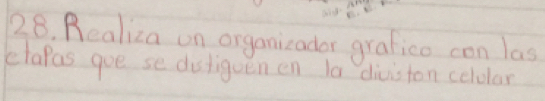 28. Realiza un organizador grafico con las
etapas que se distiguen en la division celular